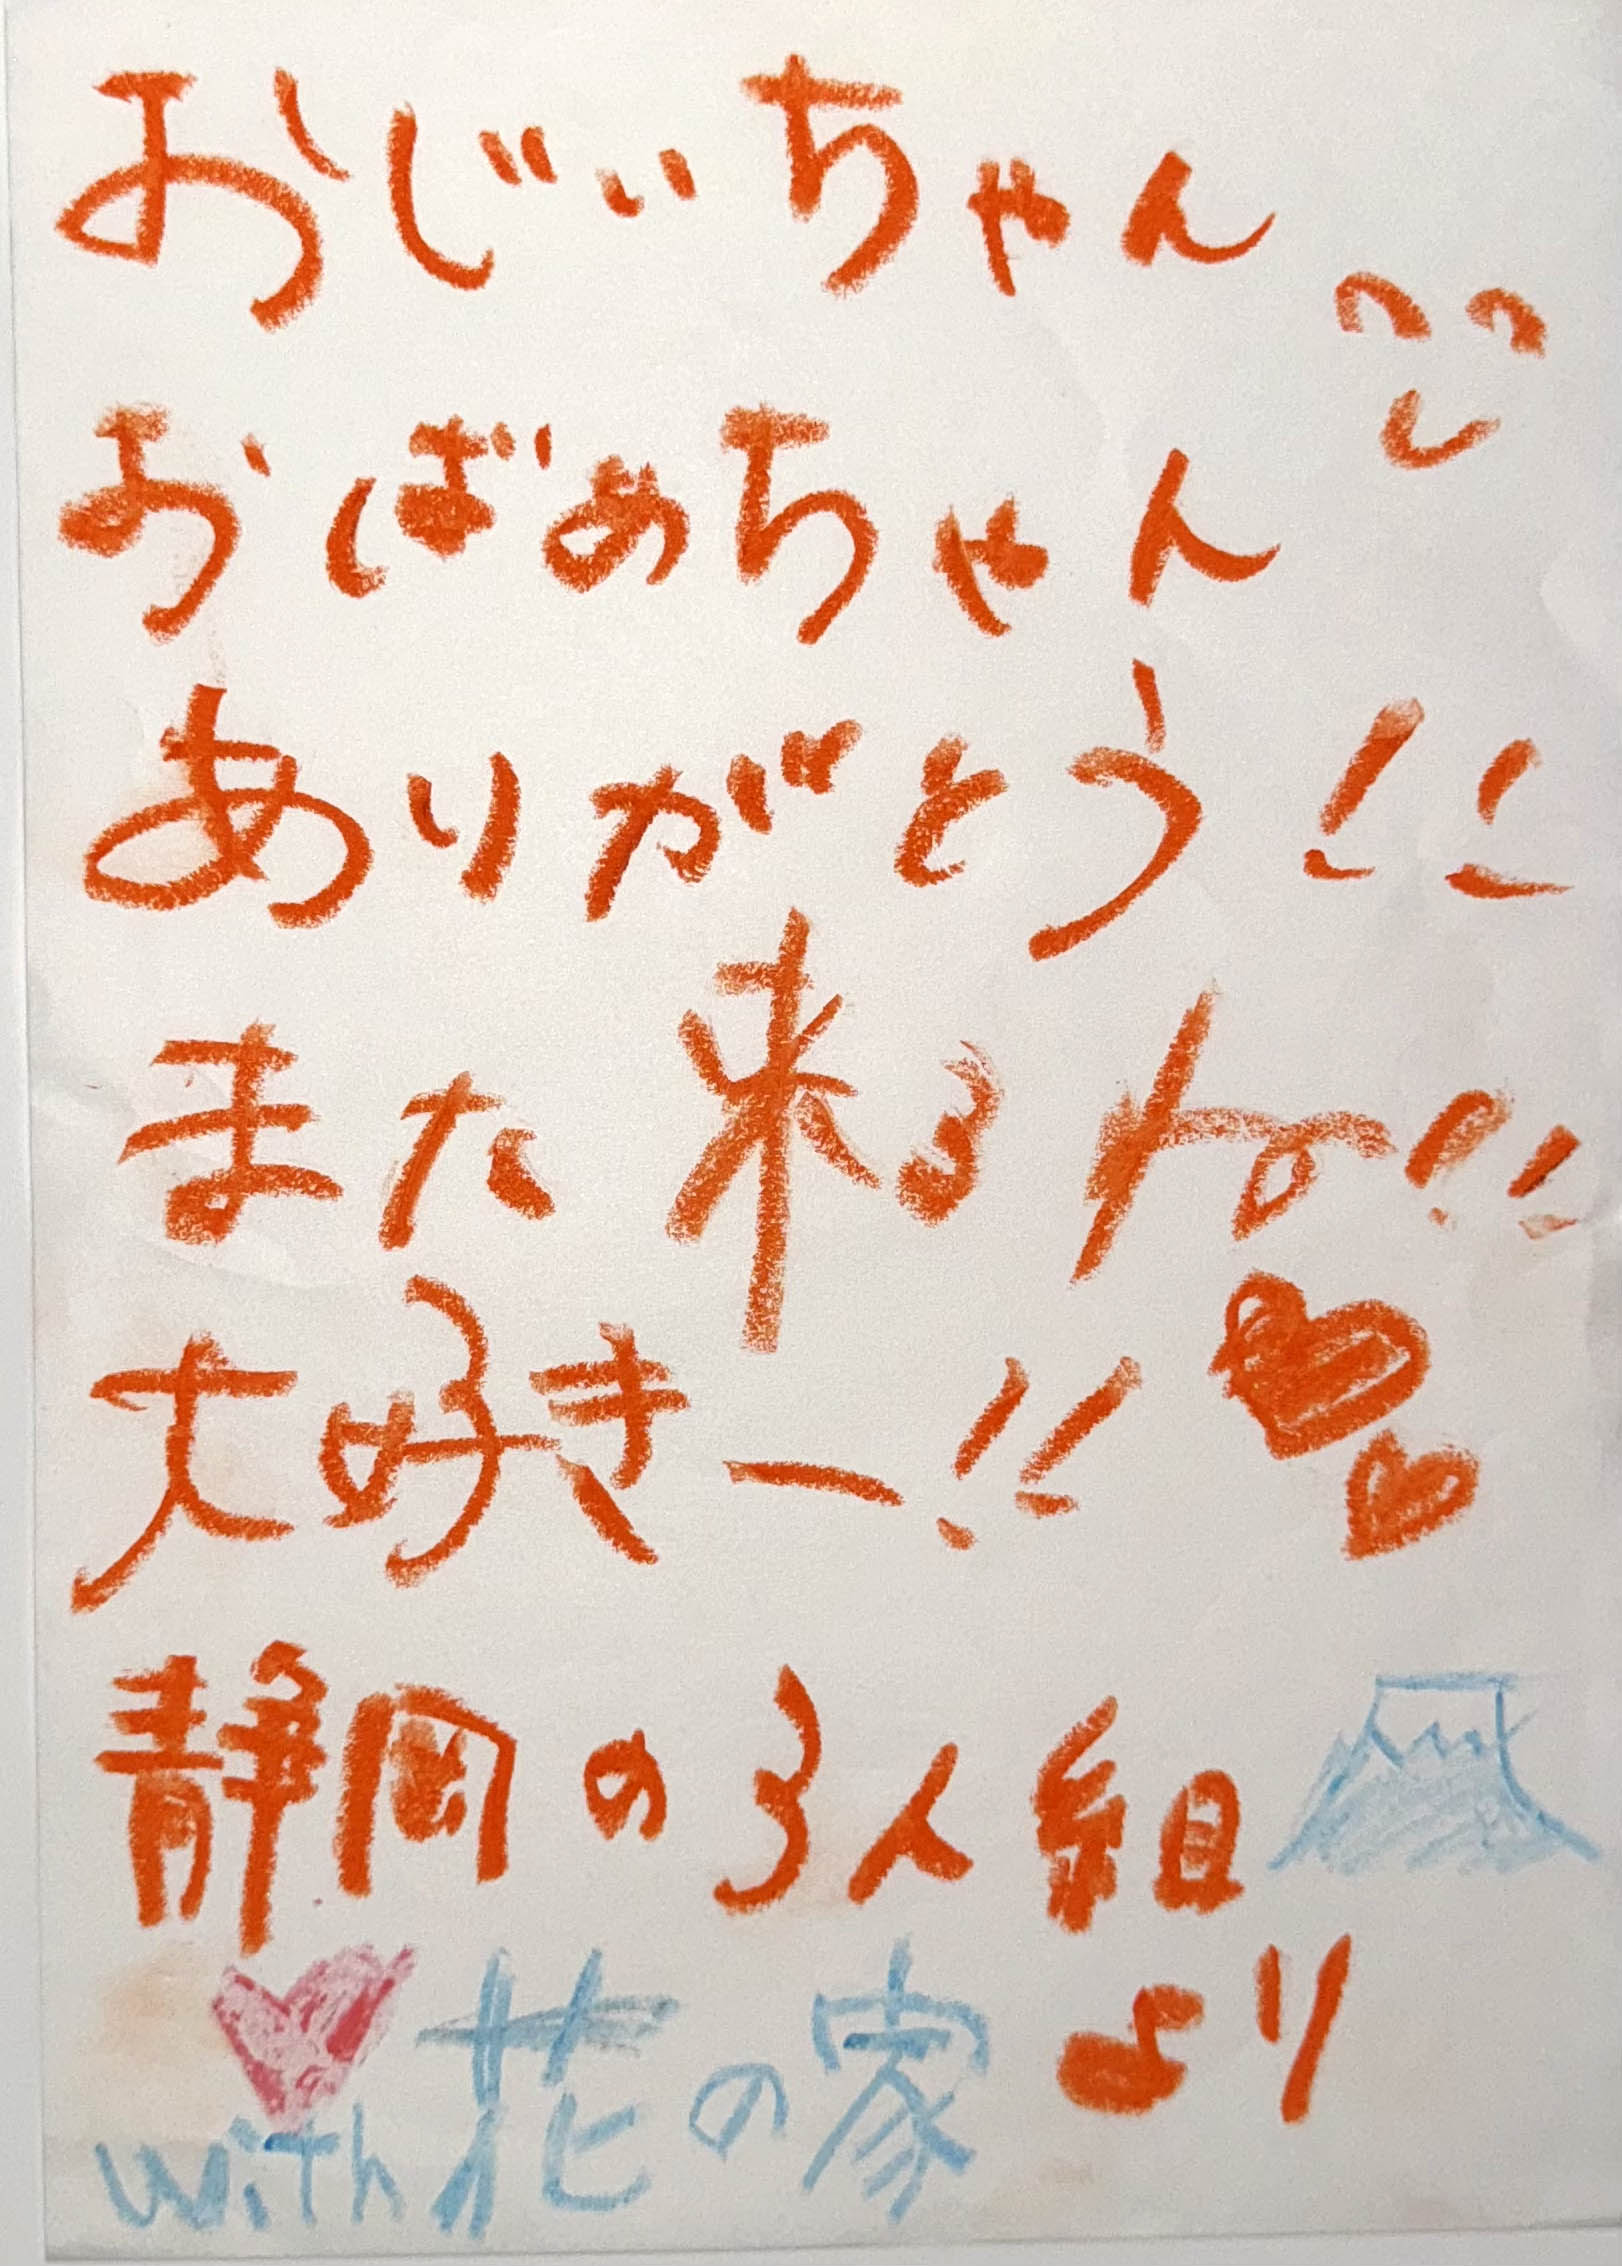 おじぃちゃん
おばあちゃん
ありがとう!!
また来るね!!
大好きー!!
静岡の3人組
より
with花の家